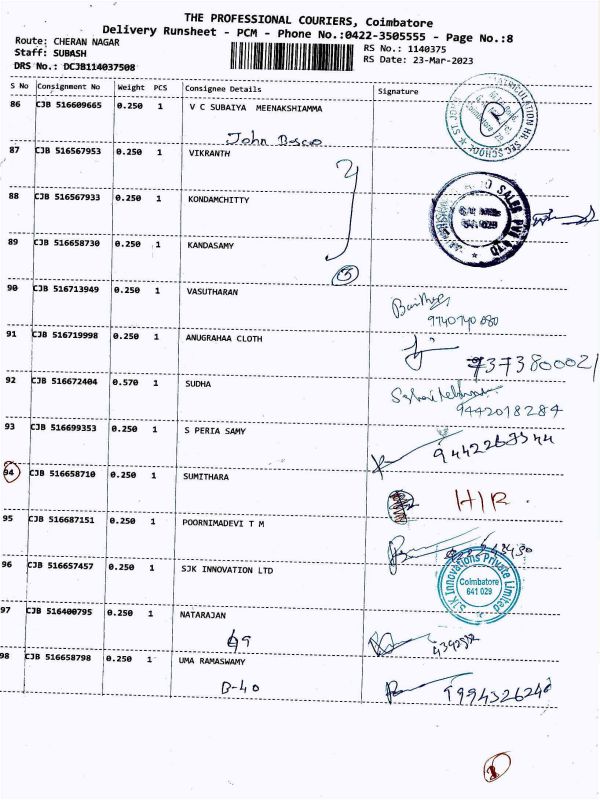 THE PROFESSIONAL COURIERS, Coimbatore
Delivery Runsheet - PCM - Phone No.:0422-3505555 - Page No.:8
Route: CHERAN NAGAR
Staff: SUBASH
DRS No.: DCJB114037508
RS No.: 1140375
RS Date: 23-Mar-2023
S No Consignment No Weight PCS Consignee Details Signature
86 CJB 516609665 0.250 1 V C SUBAIYA MEENAKSHIAMMA
John Bosco
87 CJB 516567953 0.250 1 VIKRANTH
88 CJB 516567933 0.250 1 KONDAMCHITTY
89 CJB 516658730 0.250 1 KANDASAMY
5
90 CJB 516713949 0.250 1 VASUTHARAN
9740740880
91 CJB 516719998 0.250 1 ANUGRAHAA CLOTH
9373800021
92 CJB 516672404 0.570 1 SUDHA
9442018284
93 CJB 516699353 0.250 1 S PERIA SAMY
9442267544
94 CJB 516658710 0.250 1 SUMITHARA
H/R
95 CJB 516687151 0.250 1 POORNIMADEVI T M
96 CJB 516657457 0.250 1 SJK INNOVATION LTD
SJK Innovations Private Limited
Coimbatore
641 029
97 CJB 516400795 0.250 1 NATARAJAN
69
98 CJB 516658798 0.250 1 UMA RAMASWAMY
B-40
9994326240